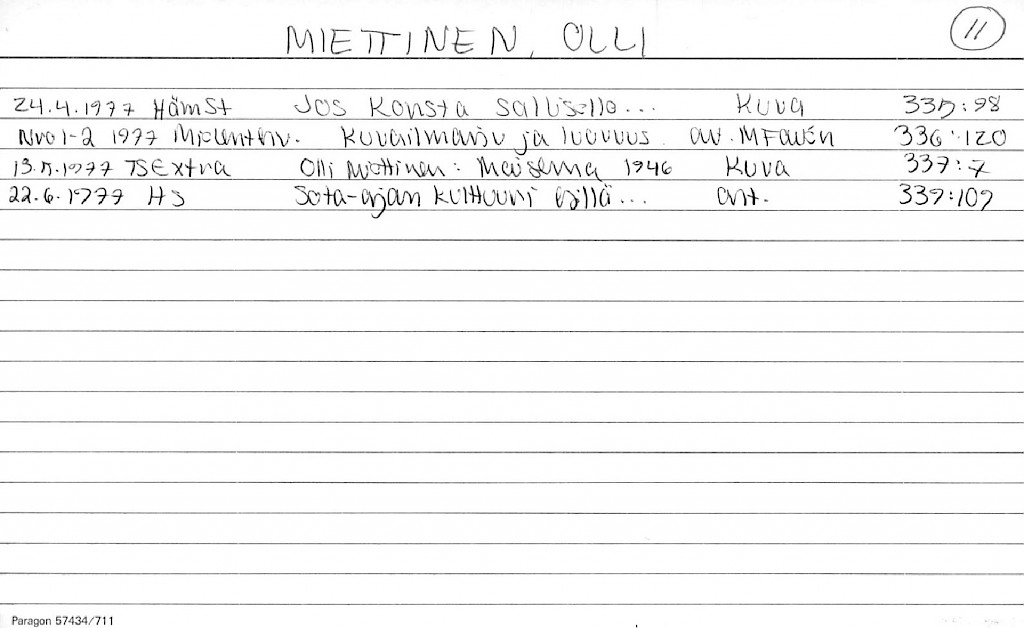 MIETTINEN, OLLI
11
24.4.1977 HämSt Jos Konsta sallisello... Kuva 335:98
Nro 1-2 1977 Mielenterv. Kuvailmaisu ja luovuus art. 336:120
13.5.1977 TSExtra Olli Miettinen: Maisema 1946 Kuva 337:7
22.6.1977 HS Sota-ajan kulttuuri esillä... art. 339:109
Paragon 57434/711